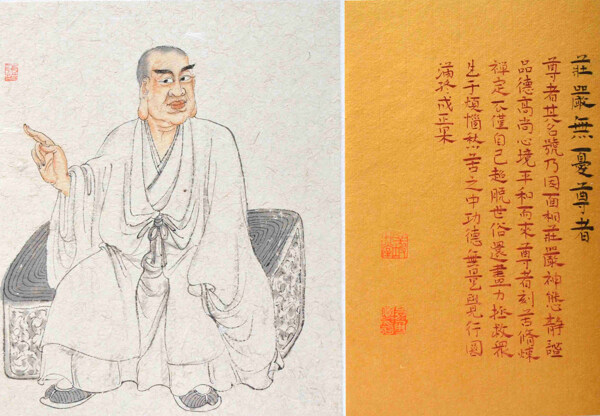 莊嚴無憂尊者
尊者其名號乃因面相莊嚴神態靜謐
品德高尚心境平和而來尊者刻苦修煉
禪定不僅自己超脫世俗還盡力拯救眾
生于煩惱愁苦之中功德無量覺行圓
滿終成正果